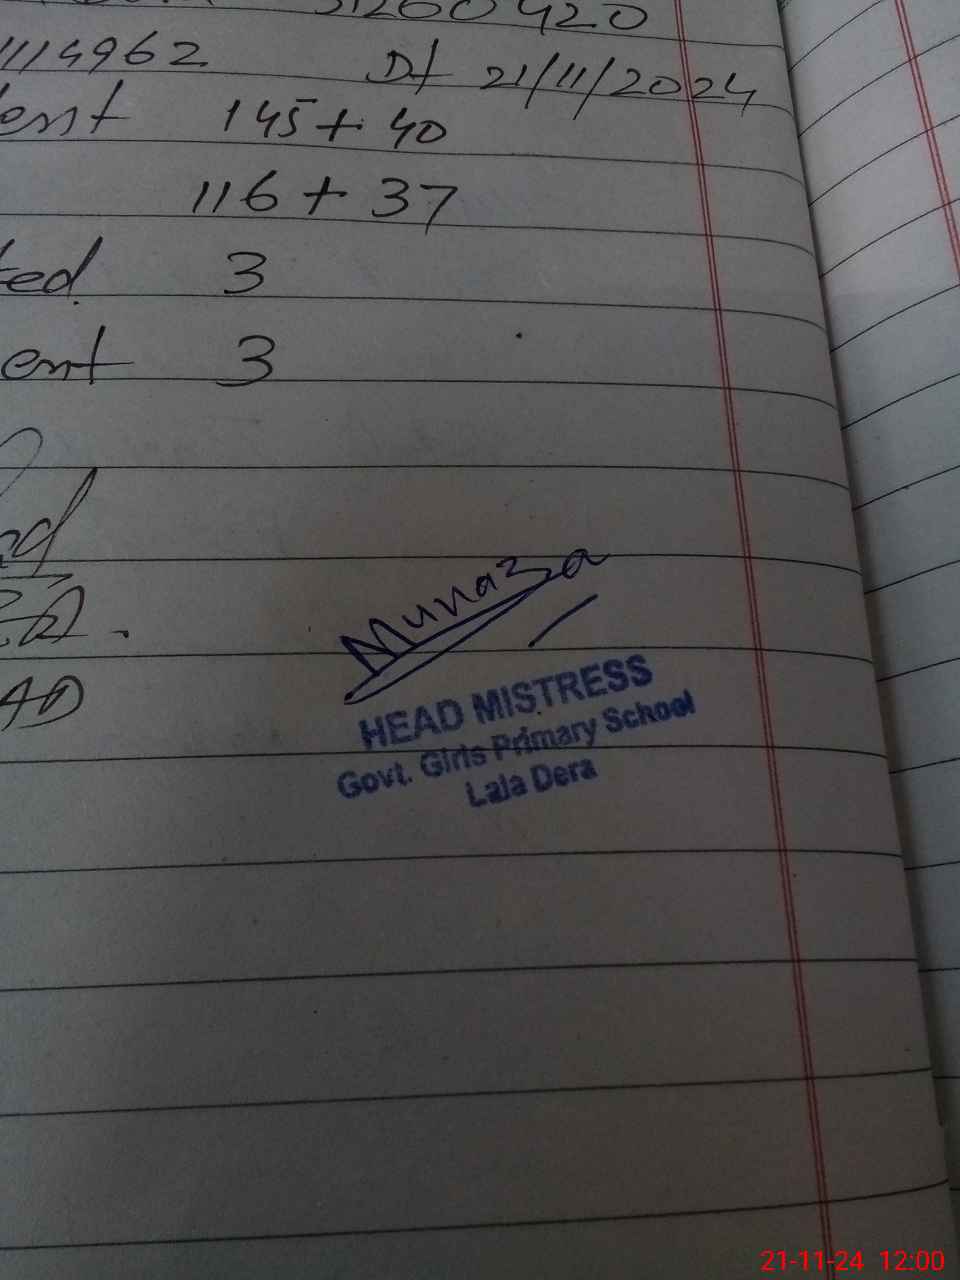 31260420
1114962 Dt 21/11/2024
ent 145 + 40
116 + 37
ted. 3
ent 3
Munaza
HEAD MISTRESS
Govt. Girls Primary School
Lala Dera
21-11-24 12:00